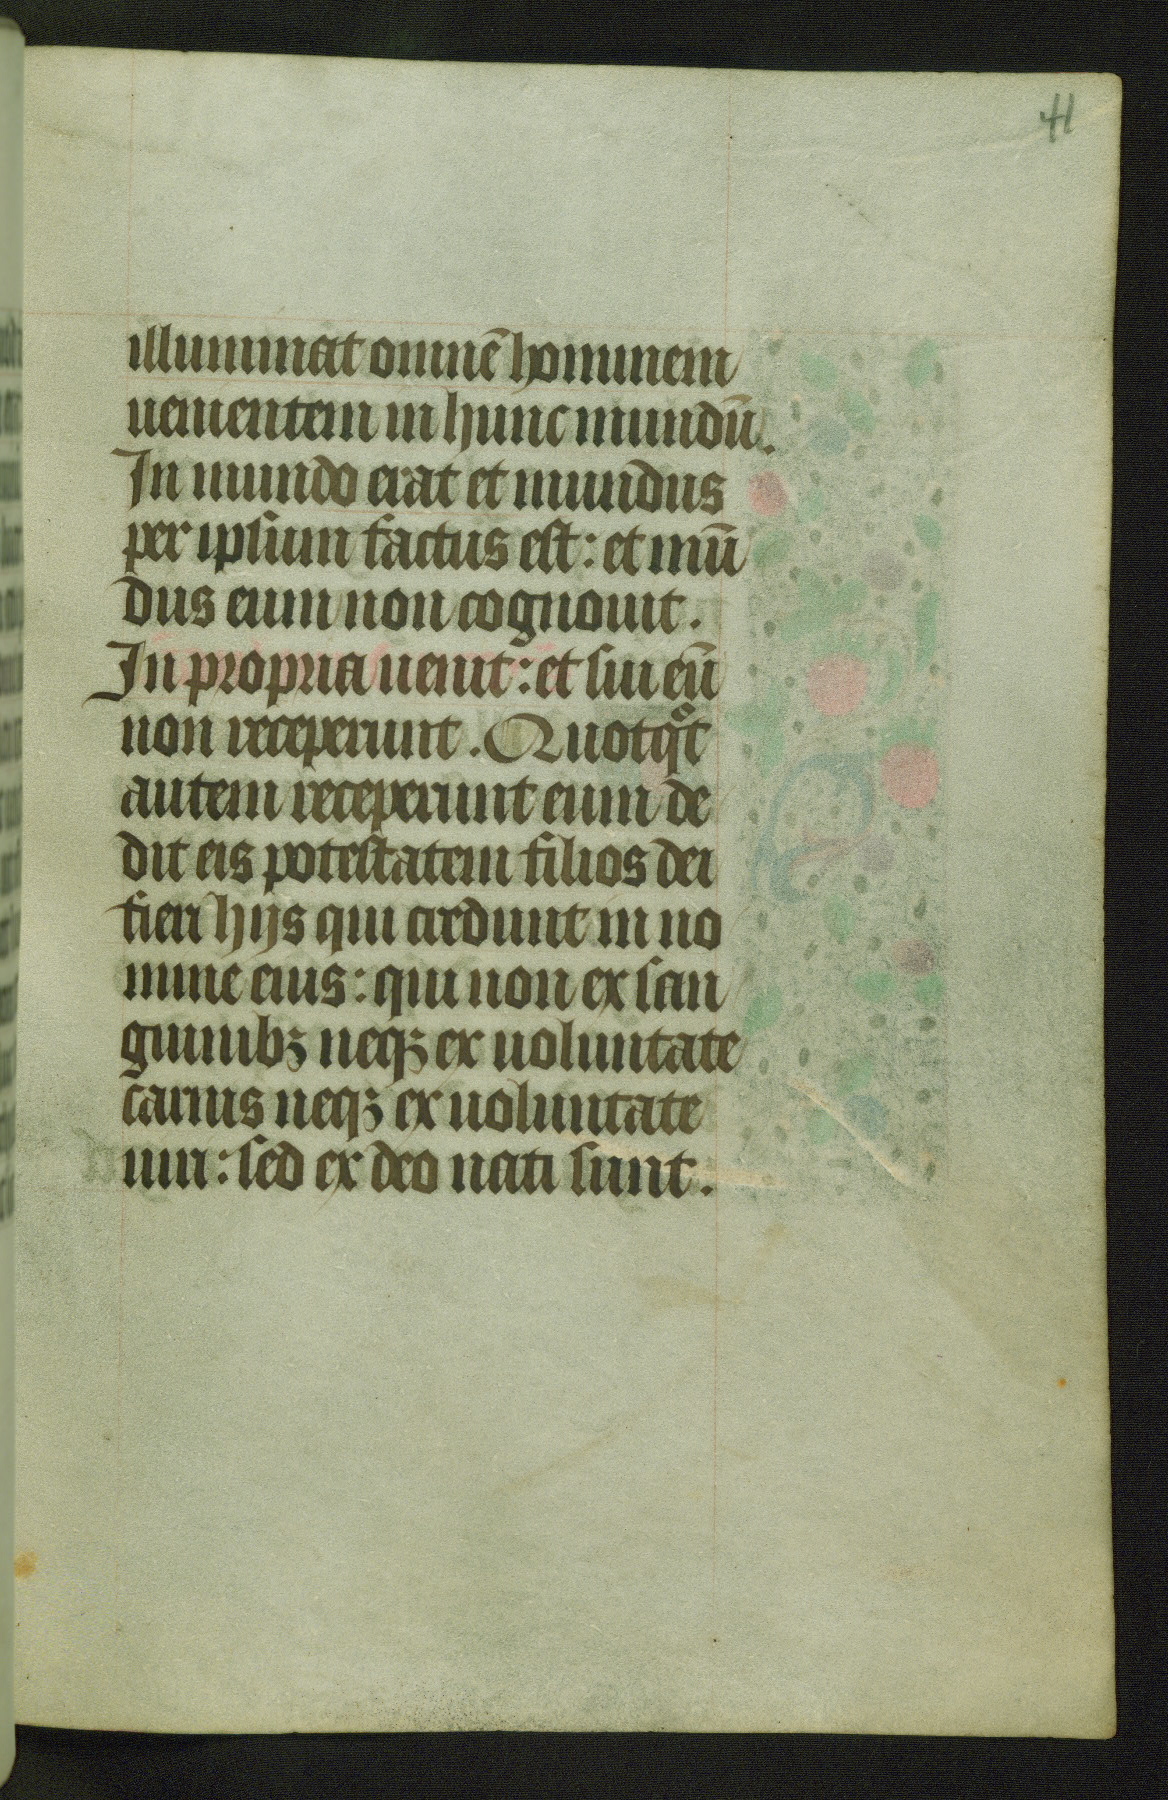 41
illuminat omnē hominem
uenientem in hunc mundū.
In mundo erat et mundus
per ipsum factus est: et mū
dus eum non cognouit.
In propria uenit: et sui eū
non receperunt. Quotqͦt
autem receperunt eum de
dit eis potestatem filios dei
fieri hijs qui credunt in no
mine eius: qui non ex san
guinibꝫ neqꝫ ex uoluntate
carnis neqꝫ ex uoluntate
uiri: sed ex deo nati sunt.